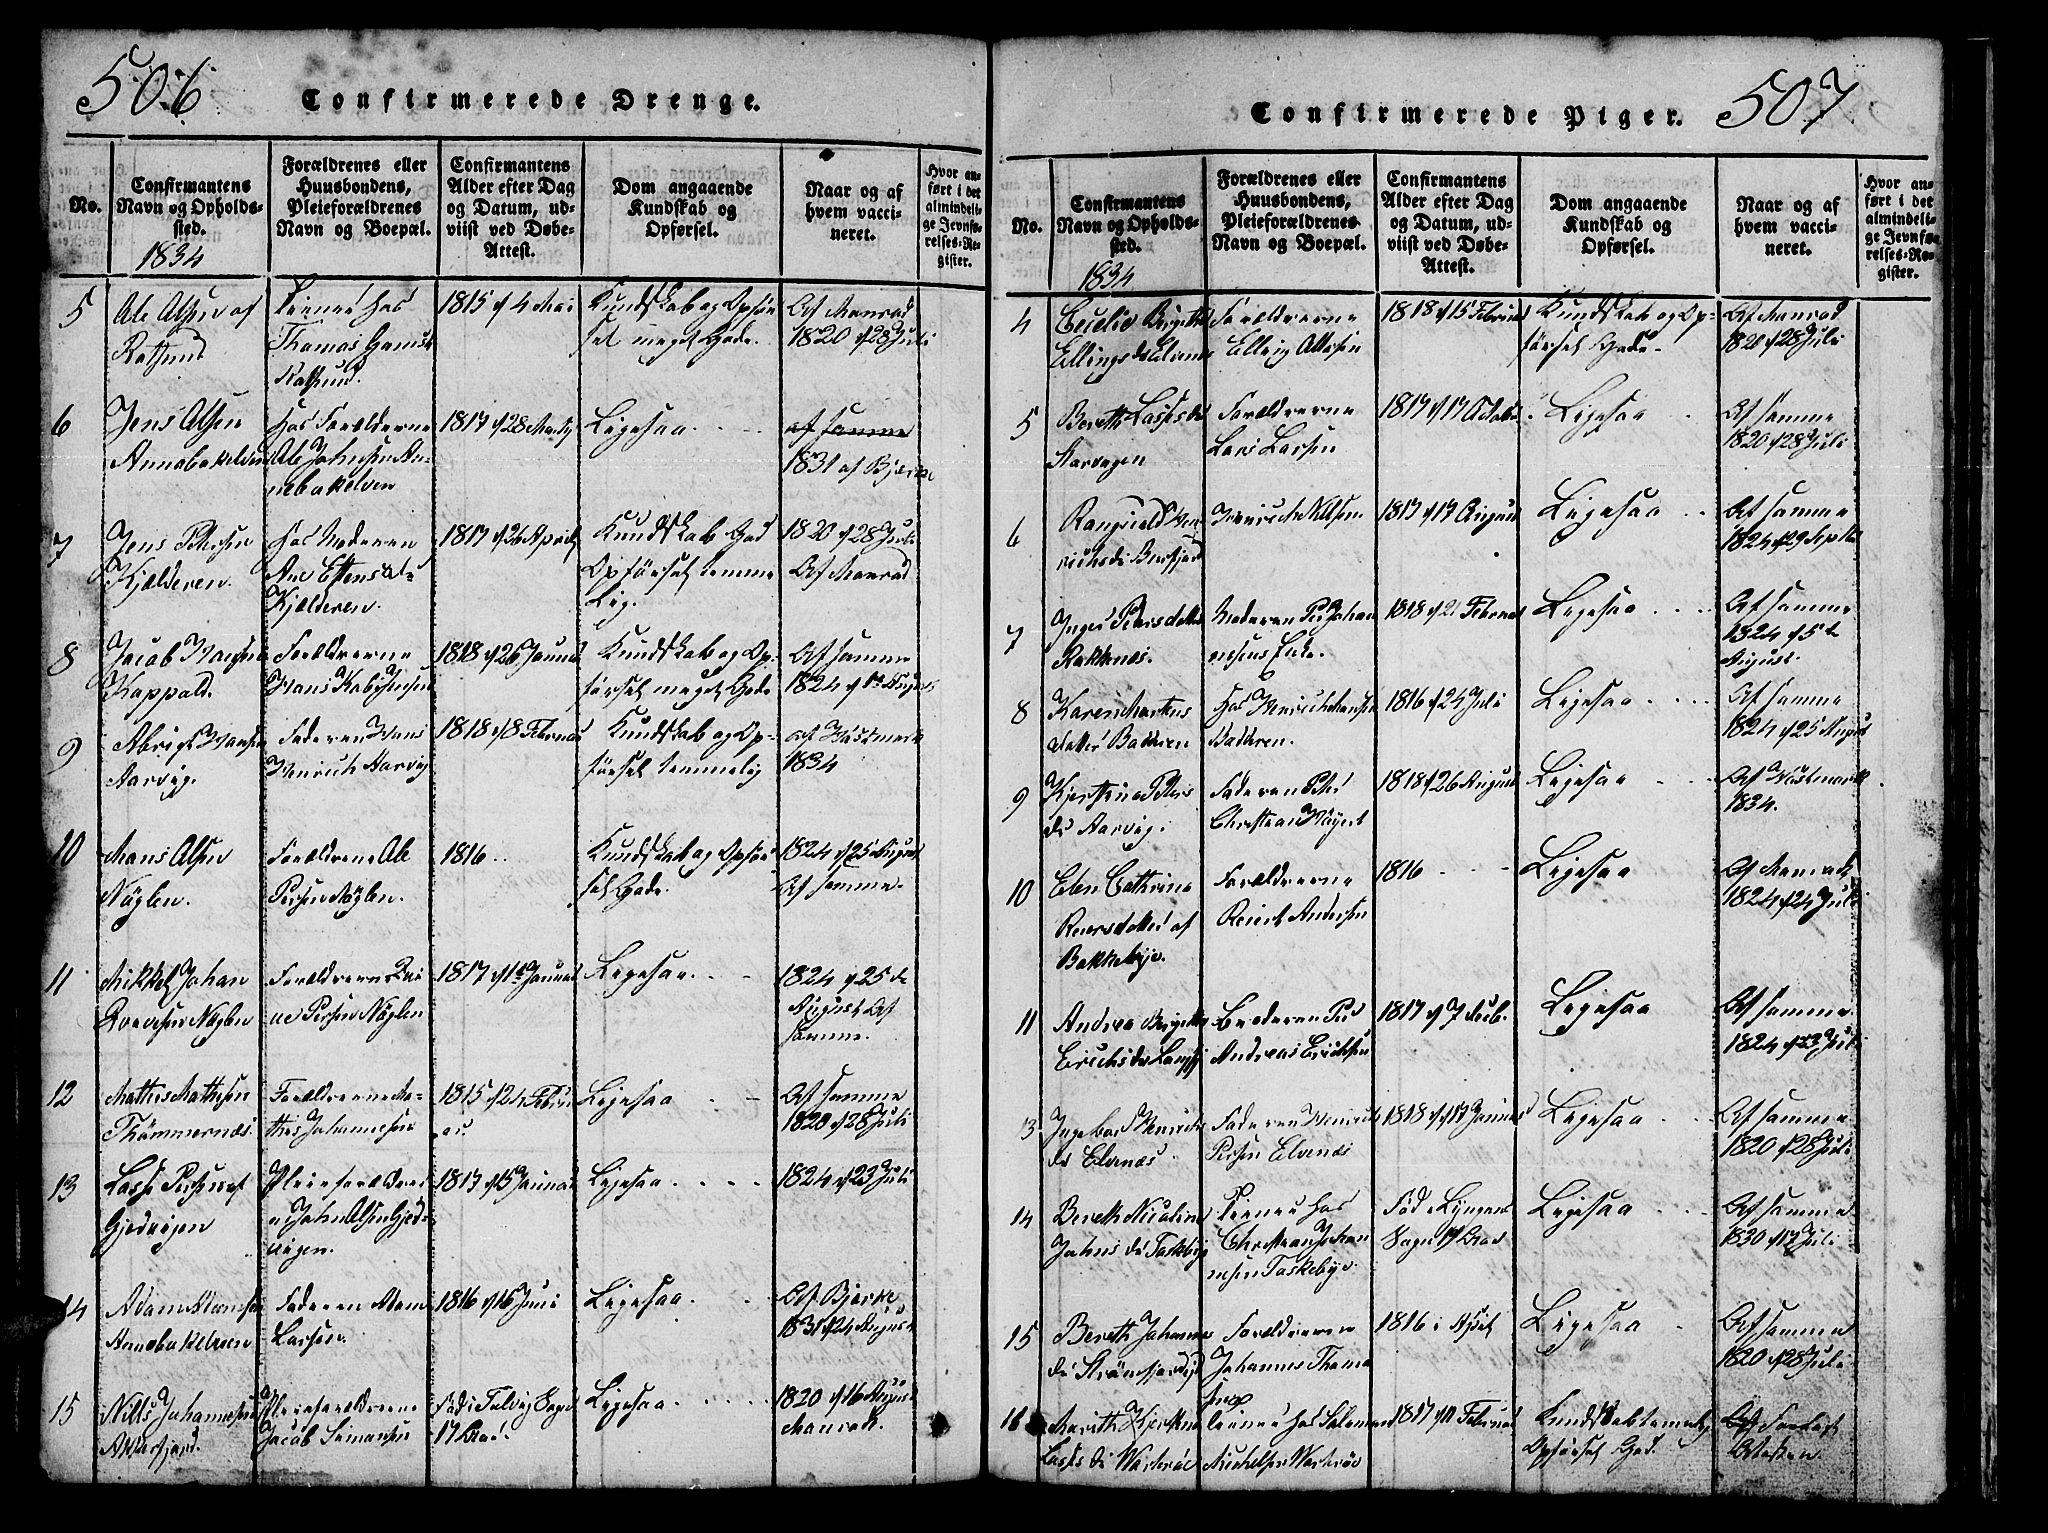 506
Confirmerede Drenge.
No.
Confirmantens
Navn og Opholds-
sted.
1834
Forældrenes eller
Huusbondens,
Pleieforældrenes
Navn og Boepæl.
Confirmantens
Alder efter Dag
og Datum, ud-
viist ved Døbe-
Attest.
Dom angaaende
Kundskab og
Opførsel.
Naar og af
hvem vacci-
neret.
Hvor an-
ført i det
almindeli-
ge Jevnfø-
relses-Re-
gister.
5
Ole Olsen af
Rafsund
Tiener hos
Thomas
Rafsund.
1815 4 Mai
Kundskab og Opför-
sel meget Gode.
Af Monrad
1820 28 Juli
6
Jens Olsen
Hos Forældrene
Ole Johnsen An-
nebakelven
1817 28
Ligesaa
af samme
1831 af Bjerke
7
Jens Petersen
Kjælderen.
Hos Moderen
Ane
Kjælderen.
1817 26 April
Kundskab God
Opförsel temme
lig.
1820 28 Juli
Af Monrad
8
Jacob Hansen
Kappold.
Forældrerne
Hans
1818 26 Januar
Kundskab og Op-
försel meget Gode
Af samme
1824
9
Hansen
Aarvig.
Faderen Hans
Henrich Aarvig
1818 8 Februar
Kundskab og Op-
försel temmelig
af Wastmark
1834
10
Hans Olsen
Nöglen.
Forældrene Ole
Persen Nöglen.
1816
Kundskab og Opför-
sel Gode.
1824 25 August
Af samme.
11
Mikkel Johan
Nöglen
Forældrerne
Persen Nöglen
1817 1ste Januar
Ligesaa
1824 25 de
August Af
samme.
12
Mathis Mathisen
Thömmernæs.
Forældrerne Ma-
this Johannesen
1815 Febru
ar.
Ligesaa
Af samme
1820 28 Juli
13
Lasse Persen af
Gjedvigen
Pleieforældre
John Olsen Gjed-
vigen.
1817 15 Januar
Ligesaa
1824 23 Juli
14
Adam Adamsen
Annebakelvæn
Faderen Adam
Larsen.
1816 16 Juni
Ligesaa
Af Bjerke
1831 24 August
15
Nills Johannesen
Alkesfjord.
Pleieforældrene
Jacob Simonsen
Fød i Talvig Sogn
17 Aar.
Ligesaa
1820 16 August
Monrad.
507
Confirmerede Piger.
No.
Confirmantens
Navn og Opholds-
sted.
1834
Forældrenes eller
Huusbondens,
Pleieforældrenes
Navn og Boepæl.
Confirmantens
Alder efter Dag
og Datum, ud-
viist ved Døbe-
Attest.
Dom angaaende
Kundskab og
Opførsel.
Naar og af
hvem vacci-
neret.
Hvor an-
ført i det
almindeli-
ge Jevnfø-
relses-Re-
gister.
4
Cecilie Birgitte
Ellings dr Elvenæs
Forældrerne
Elling Ottesen
1818 15 Februar
Kundskab og Op-
försel Gode.
Af Monrad
1820 28 Juli
5
Bereth Lasses dr
Aarvogen
Forældrerne
Lars Larsen
1817 17 October
Ligesaa
Af samme
1820 28 Juli
6
Rangnild Hen
richs dr
Henrich Nilsen
1817 17 August
Ligesaa
Af samme
1824 29 Septbr
7
Inger Persdatter
Rakkenæs.
Moderen Per Johan
nesens Enke.
1818 21 Februar
Ligesaa
Af samme
1824 5te
August.
8
Karen Martens
datter Bakken
Hos Henrich Hansen
Bakken.
1816 24 Juli
Ligesaa
Af samme
1824 25 August
9
Peters
dr Aarvig.
Faderen Peter
Christian
1818 26 August
Ligesaa
Af Wastmark
1834.
10
Elen Cathrina
Reiersdatter af
Bakkebye.
Forældrerne
Reiert Andersen
1816
Ligesaa
Af Monrad
1824 24 Juli
11
Andrea Birgitte
Erichs dr
Broderen Per
Andreas Erichsen
1817 7 Decb.
Ligesaa
Af samme
1824 23 Juli
13
Ingebor Henrichs
dr Elvenæs.
Faderen Henrich
Persen Elvenæs
1818 17 Januar
Ligesaa
Af samme
1820 28 Juli
14
Bereth Nicoline
Johns dr Taskebye
Tiener hos
Christian Johan
nesen Taskebye.
Fød i Lyngens
Sogn 17 Aar
Ligesaa
Af samme
1830 17 Juli
15
Bereth Johannes
dr Strömfjord
Forældrerne
Johannes Thoma
sen
1816 i April
Ligesaa
Af samme
1820 28 Juli
16
Marith
Lasses dr Warteröe
Tiener hos Salamon
Michelsen Warteröe
1817 11 Februar
Kundskab temmelig
Opförsel God.
Af